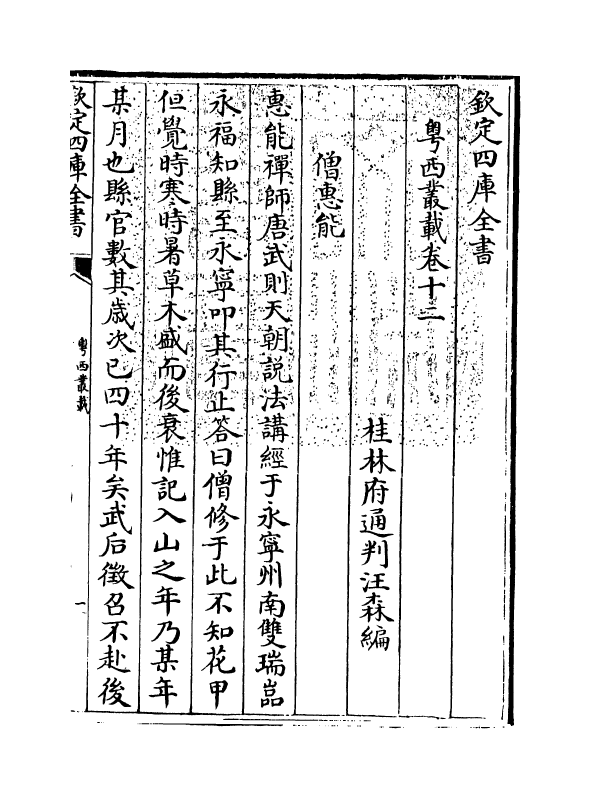 欽定四庫全書
粤西叢載卷十二
桂林府通判汪森編
僧惠能
惠能禪師唐武則天朝說法講經于永寧州南雙瑞嵓
永福知縣至永寧叩其行止答曰僧修于此不知花甲
但覺時寒時暑草木盛而後衰惟記入山之年乃某年
某月也縣官數其歳次已四十年矣武后徵召不赴後
欽定四庫全書
粤西叢載
一